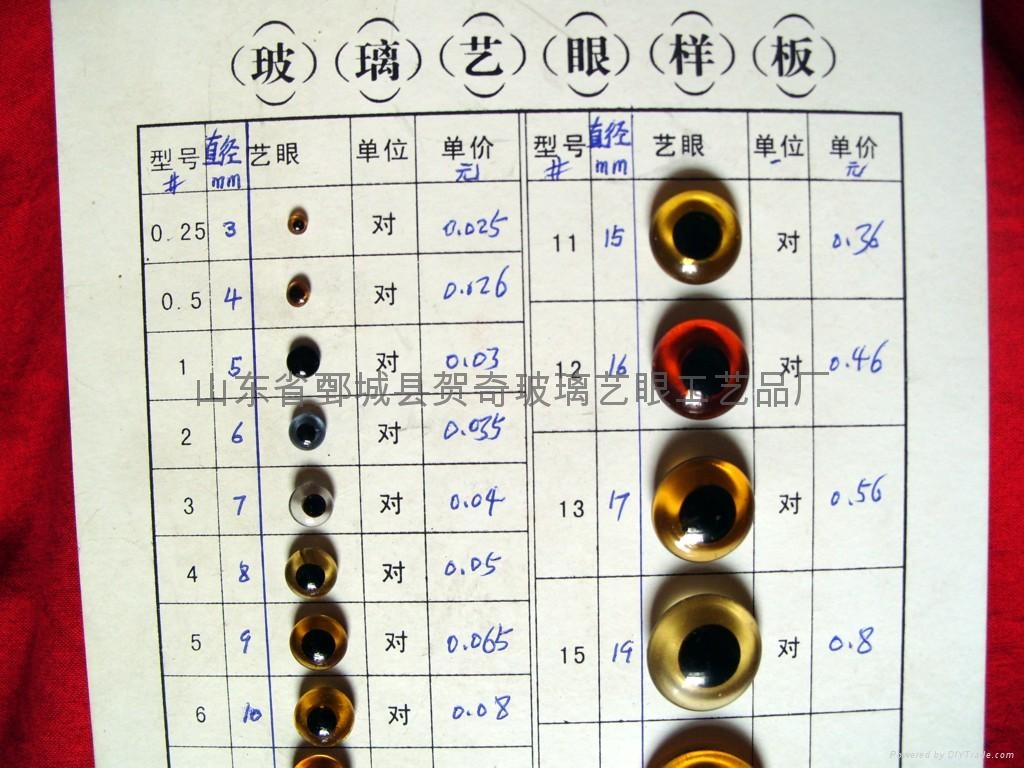 玻璃艺眼样板
型号# 直径mm 艺眼 单位 单价元 型号# 直径mm 艺眼 单位 单价元
0.25 3 对 0.025 11 15 对 0.36
0.5 4 对 0.026 12 16 对 0.46
1 5 对 0.03 13 17 对 0.56
2 6 对 0.035 15 19 对 0.8
3 7 对 0.04
4 8 对 0.05
5 9 对 0.065
6 10 对 0.08
山东省鄄城县贺奇玻璃艺眼工艺品厂
Powered by DIYTrade.com